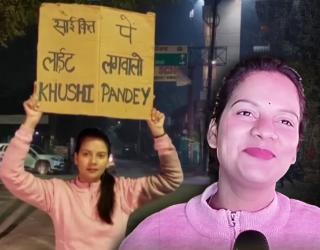 साईकिल पे
लाईट लगवालो
KHUSHI PANDEY